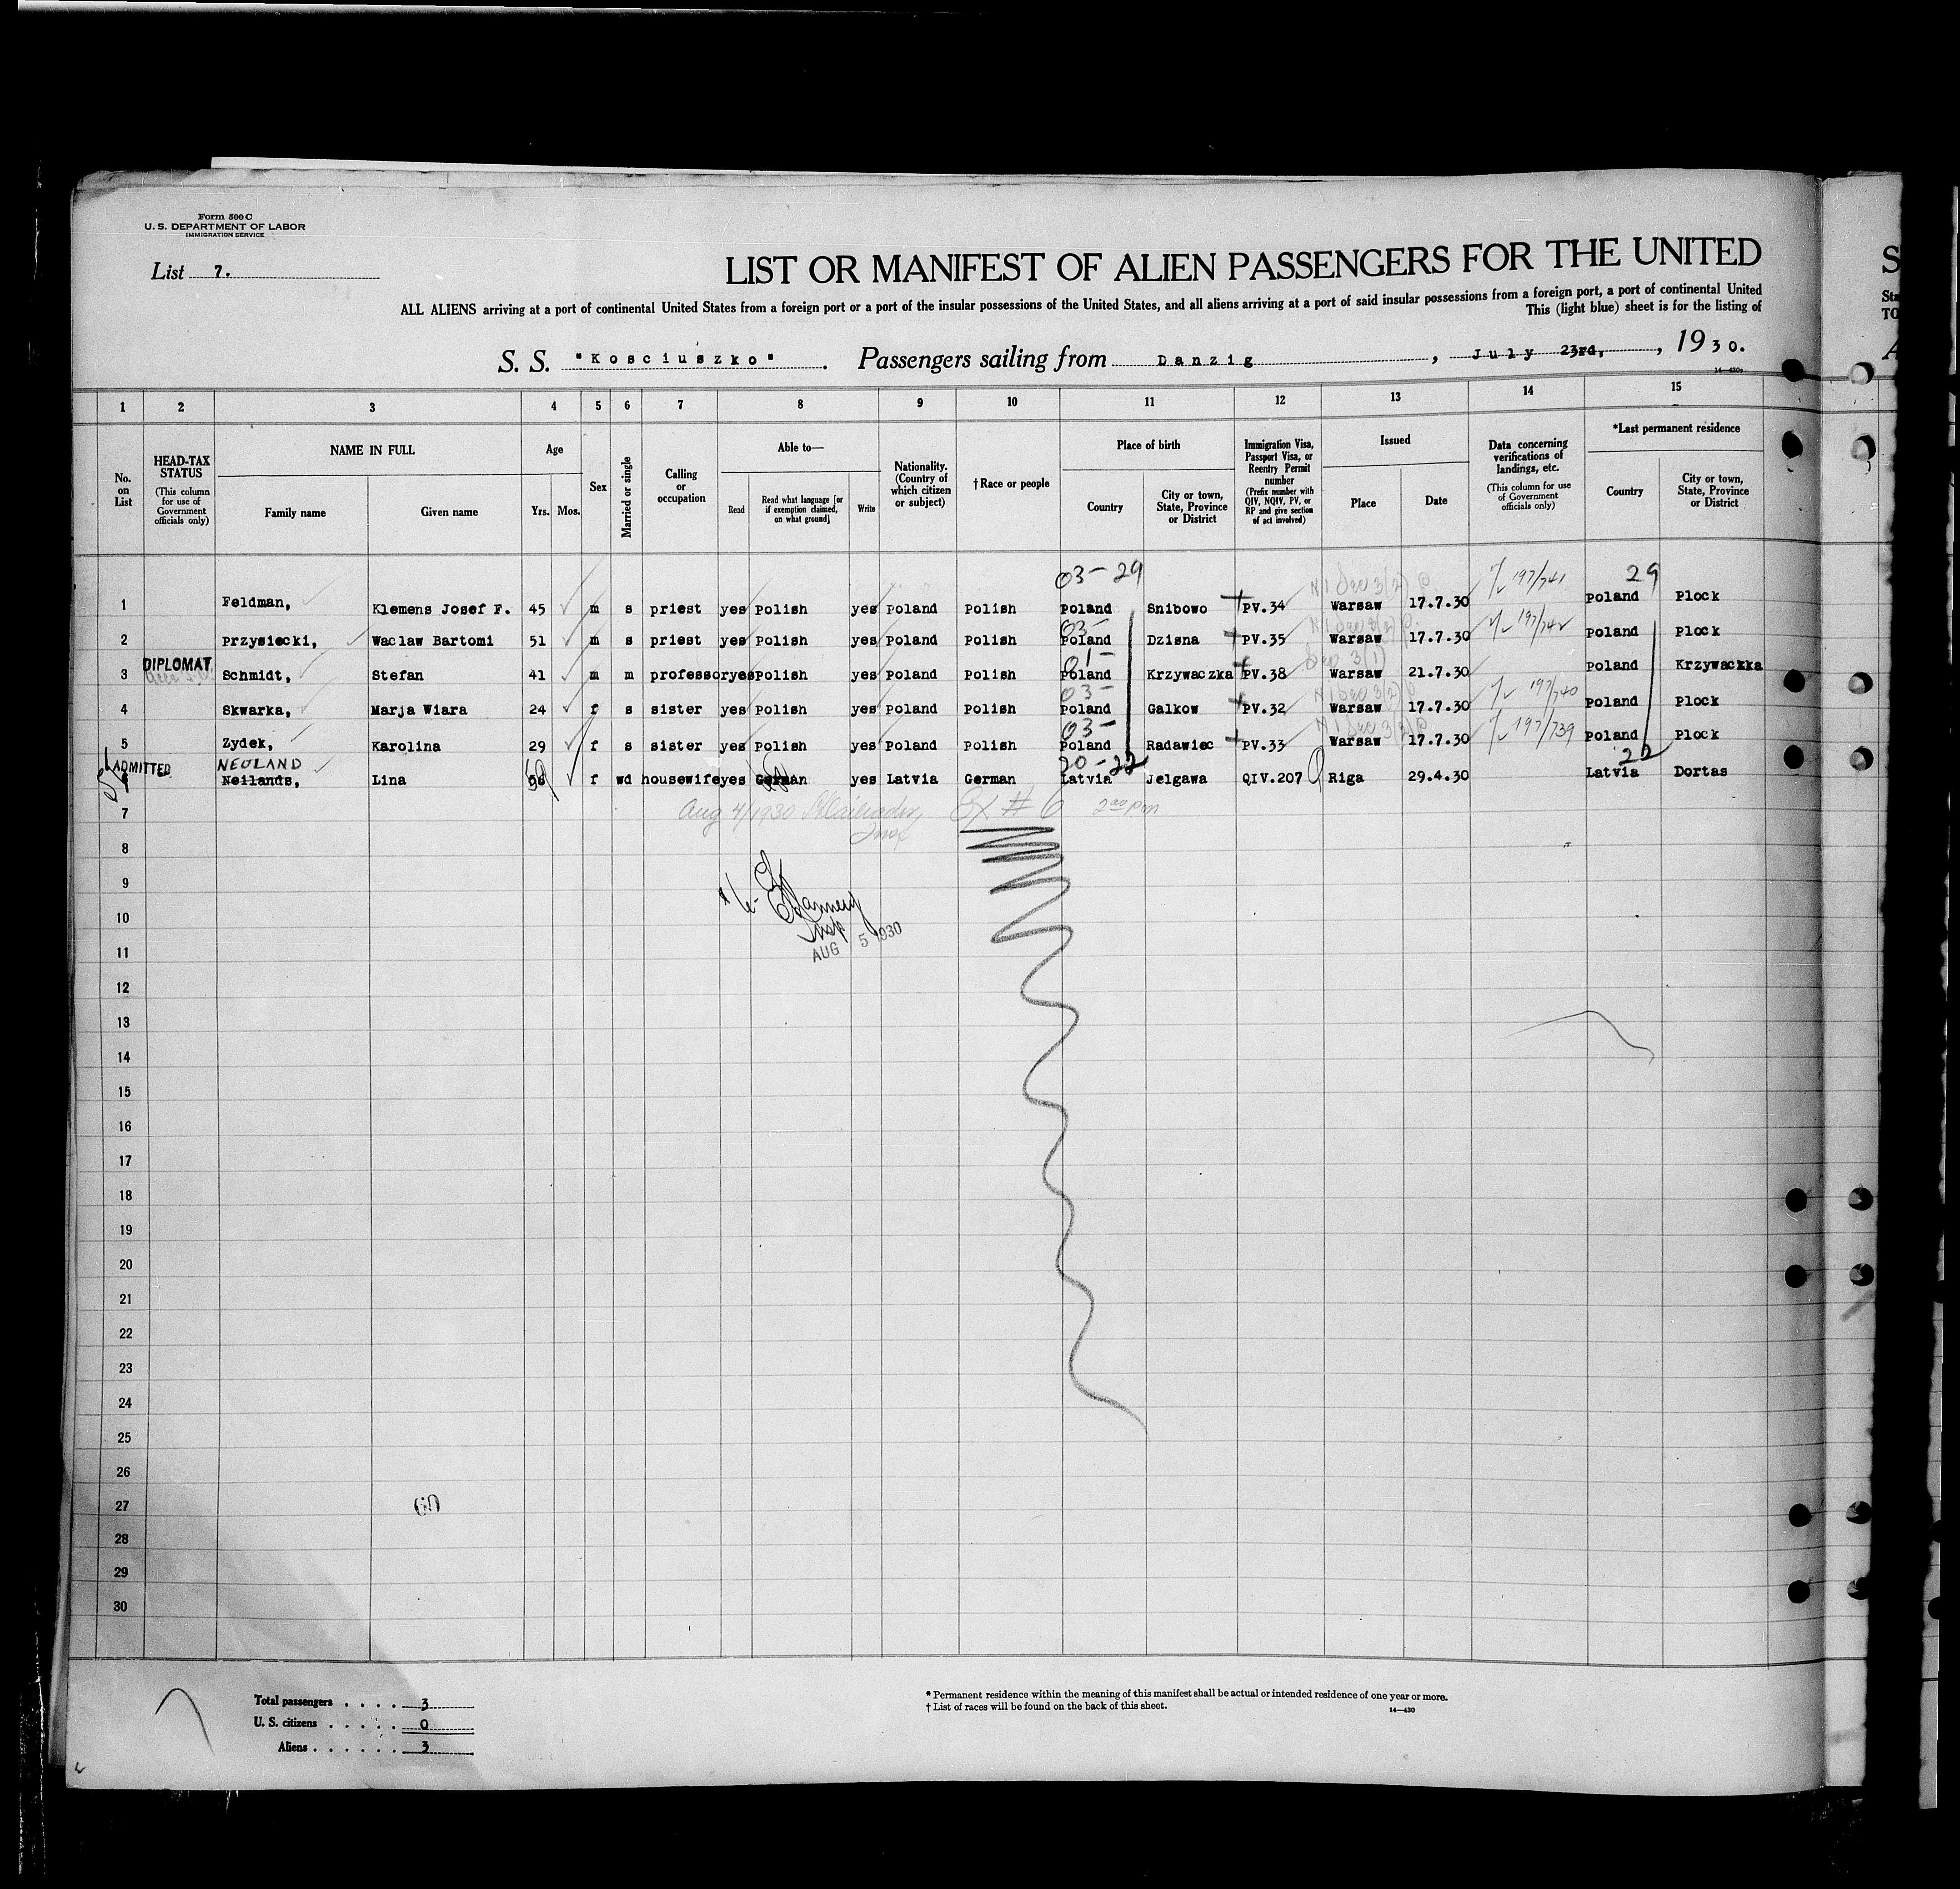 Form 500 C
U. S. DEPARTMENT OF LABOR
IMMIGRATION SERVICE
List 7.
LIST OR MANIFEST OF ALIEN PASSENGERS FOR THE UNITED
ALL ALIENS arriving at a port of continental United States from a foreign port or a port of the insular possessions of the United States, and all aliens arriving at a port of said insular possessions from a foreign port, a port of continental United
This (light blue) sheet is for the listing of
S. S. "Kosciuszko". Passengers sailing from Danzig, July 23rd, 1930.
14—430
1 2 3 4 5 6 7 8 9 10 11 12 13 14 15
No. on List
HEAD-TAX STATUS (This column for use of Government officials only)
NAME IN FULL Family name Given name
Age Yrs. Mos.
Sex
Married or single
Calling or occupation
Able to— Read Read what language [or if exemption claimed, on what ground] Write
Nationality. (Country of which citizen or subject)
†Race or people
Place of birth Country City or town, State, Province or District
Immigration Visa, Passport Visa, or Reentry Permit number (Prefix number with QIV, NQIV, PV, or RP and give section of act involved)
Issued Place Date
Data concerning verifications of landings, etc. (This column for use of Government officials only)
*Last permanent residence Country City or town, State, Province or District
03- 29 197/741 29
1 Feldman, Klemens Josef F. 45 m s priest yes Polish yes Poland Polish Poland Snibowo PV.34 Warsaw 17.7.30 Poland Plock
03- 197/742
2 Przysiecki, Waclaw Bartomi 51 m s priest yes Polish yes Poland Polish Poland Dzisna PV.35 Warsaw 17.7.30 Poland Plock
DIPLOMAT 01- Sec 3(1)
3 Schmidt, Stefan 41 m m professor yes Polish yes Poland Polish Poland Krzywaczka PV.38 Warsaw 21.7.30 Poland Krzywackka
03- 197/740
4 Skwarka, Marja Wiara 24 f s sister yes Polish yes Poland Polish Poland Galkow PV.32 Warsaw 17.7.30 Poland Plock
03- 197/739
5 Zydek, Karolina 29 f s sister yes Polish yes Poland Polish Poland Radawiec PV.33 Warsaw 17.7.30 Poland Plock
ADMITTED NEULAND 20-22 22
Neilands, Lina f wd housewife yes German yes Latvia German Latvia Jelgawa QIV.207 Riga 29.4.30 Latvia Dortas
7 Aug 4/1930 Ex # 6 2 00 pm
8
9
10
Insp
11 AUG 5 1930
12
13
14
15
16
17
18
19
20
21
22
23
24
25
26
27 60
28
29
30
Total passengers . . . . 3
U. S. citizens . . . . . 0
Aliens . . . . . . 3
* Permanent residence within the meaning of this manifest shall be actual or intended residence of one year or more.
† List of races will be found on the back of this sheet.
14—430